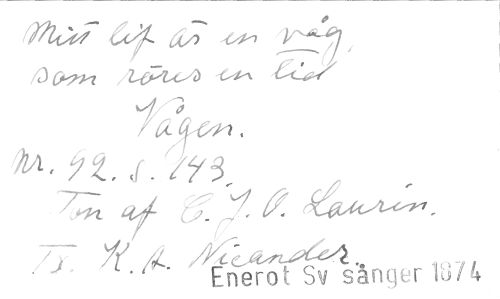 Mitt lif är en våg,
som röres en tid
Vågen.
Nr. 92. s. 143.
Ton af C. J. O. Laurin.
Tx. K. A. Nicander.
Enerot Sv sånger 1874